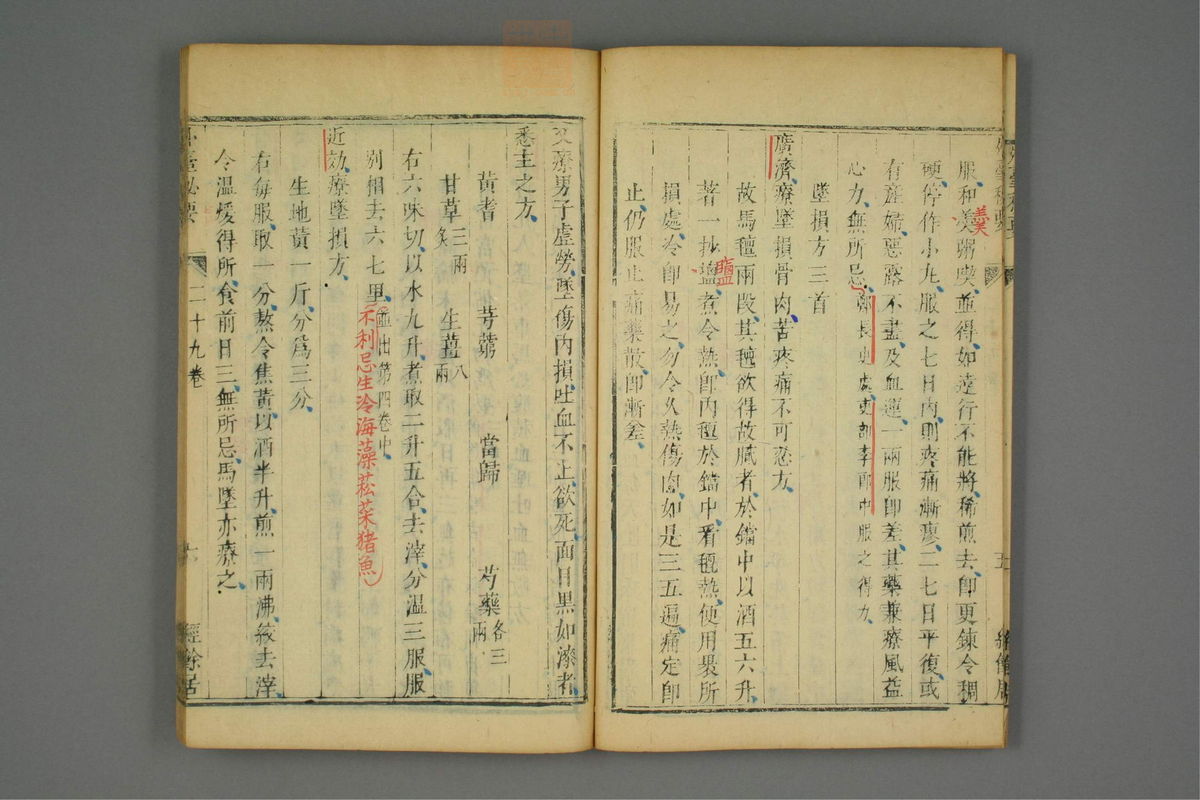 服和羹粥喫並得如遠行不能將稀煎去卽更鍊令稠
羹
硬停作小丸服之七日內則疼痛漸瘳二七日平復或
有產婦惡露不盡及血運一兩服卽差其藥兼療風益
心力無所忌鄭長史處吏部李郎中服之得力
墜損方三首
廣濟療墜損骨肉苦疼痛不可忍方
故馬氊兩段其氊欲得故膩者於鐺中以酒五六升
著一抄鹽煮令熱卽內氊於鐺中看氊熱便用裹所
鹽
損處冷卽易之勿令久熱傷肉如是三五遍痛定卽
止仍服止痛藥散卽漸差
五
又療男子虛勞墜傷內損吐血不止欲死面目黑如漆者
悉主之方
黃耆 芎藭 當歸 芍藥各三兩
甘草炙三兩 生薑八兩
右六味切以水九升煮取二升五合去滓分溫三服服
別相去六七里並出第四卷中
不利忌生冷海藻菘菜猪魚
近効療墜損方
生地黃一斤分爲三分
右每服取一分熬令焦黃以酒半升煎一兩沸絞去滓
令溫煖得所食前日三無所忌馬墜亦療之
外臺秘要 二十九卷 六 經餘居